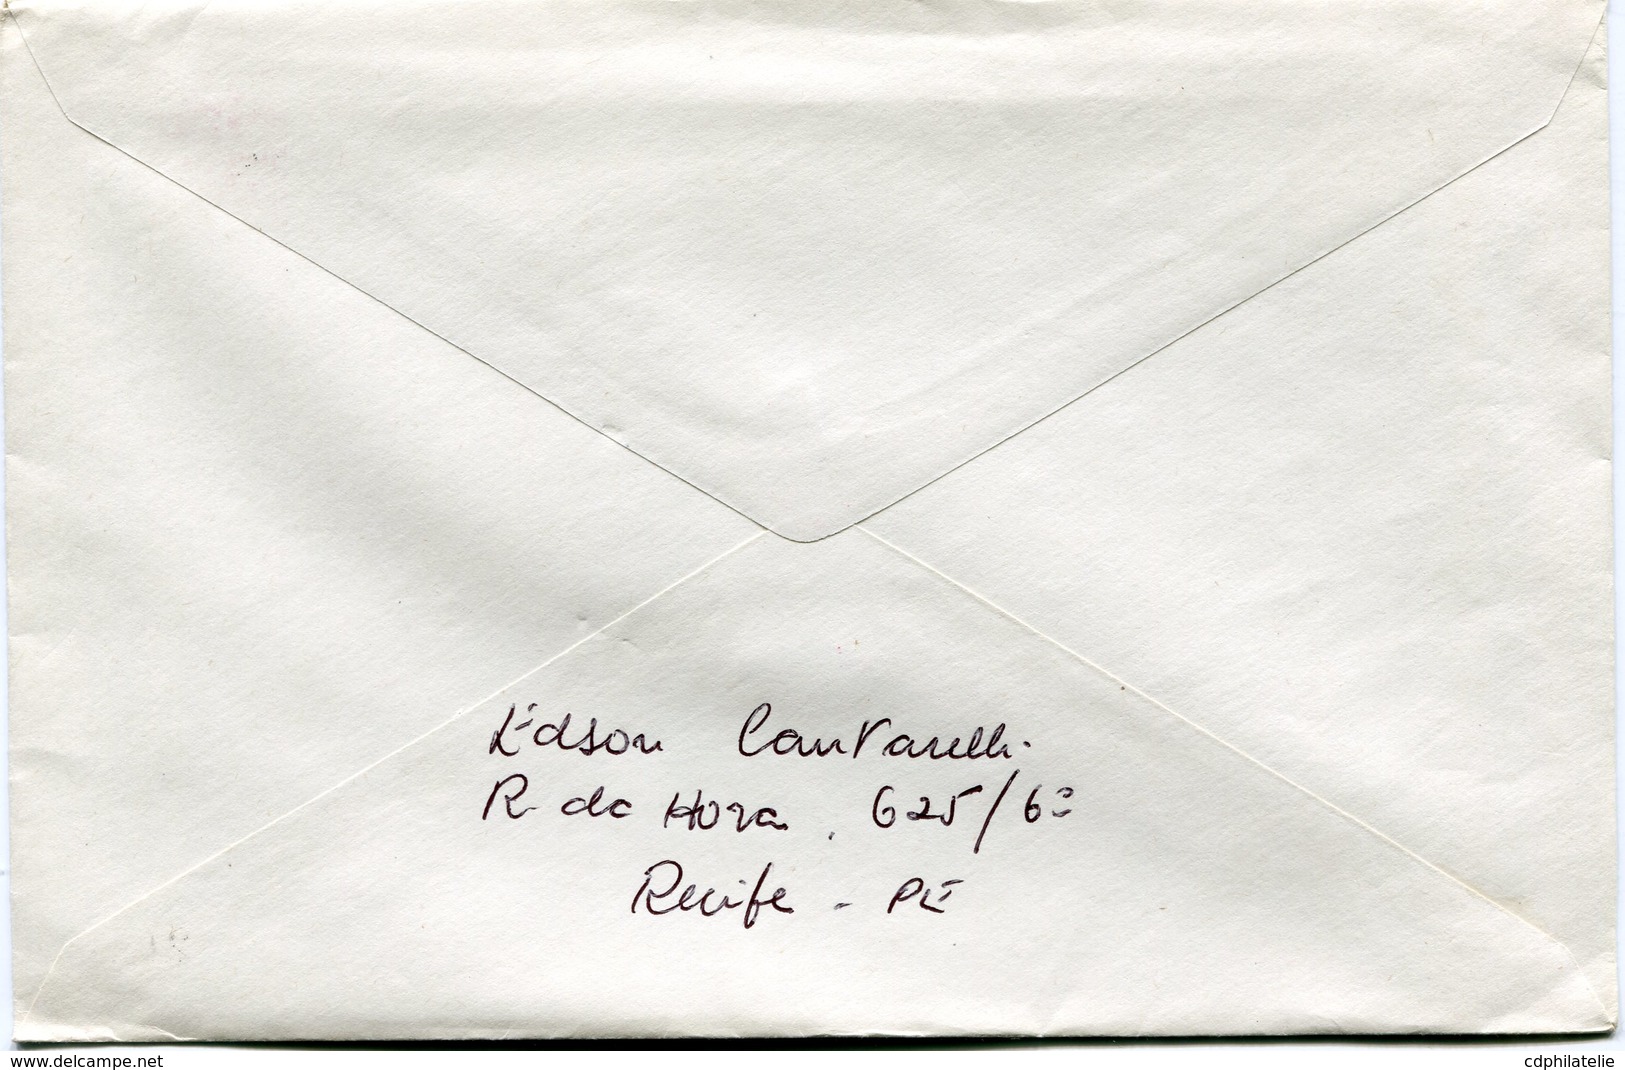 Edson Cantarelli.
R. da Hora. 625/63
Recife - PE
www.delcampe.net
cdphilatelie